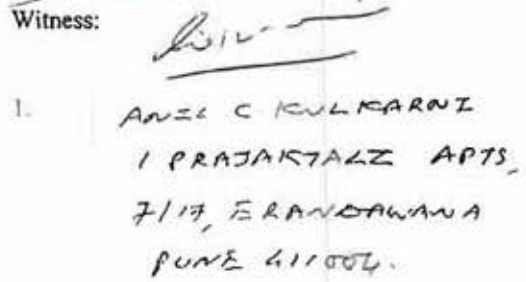 Witness:
1.
ANIL C KULKARNI
1 PRAJAKTALI APTS,
7/17, ERANDAWANA
PUNE 411004.